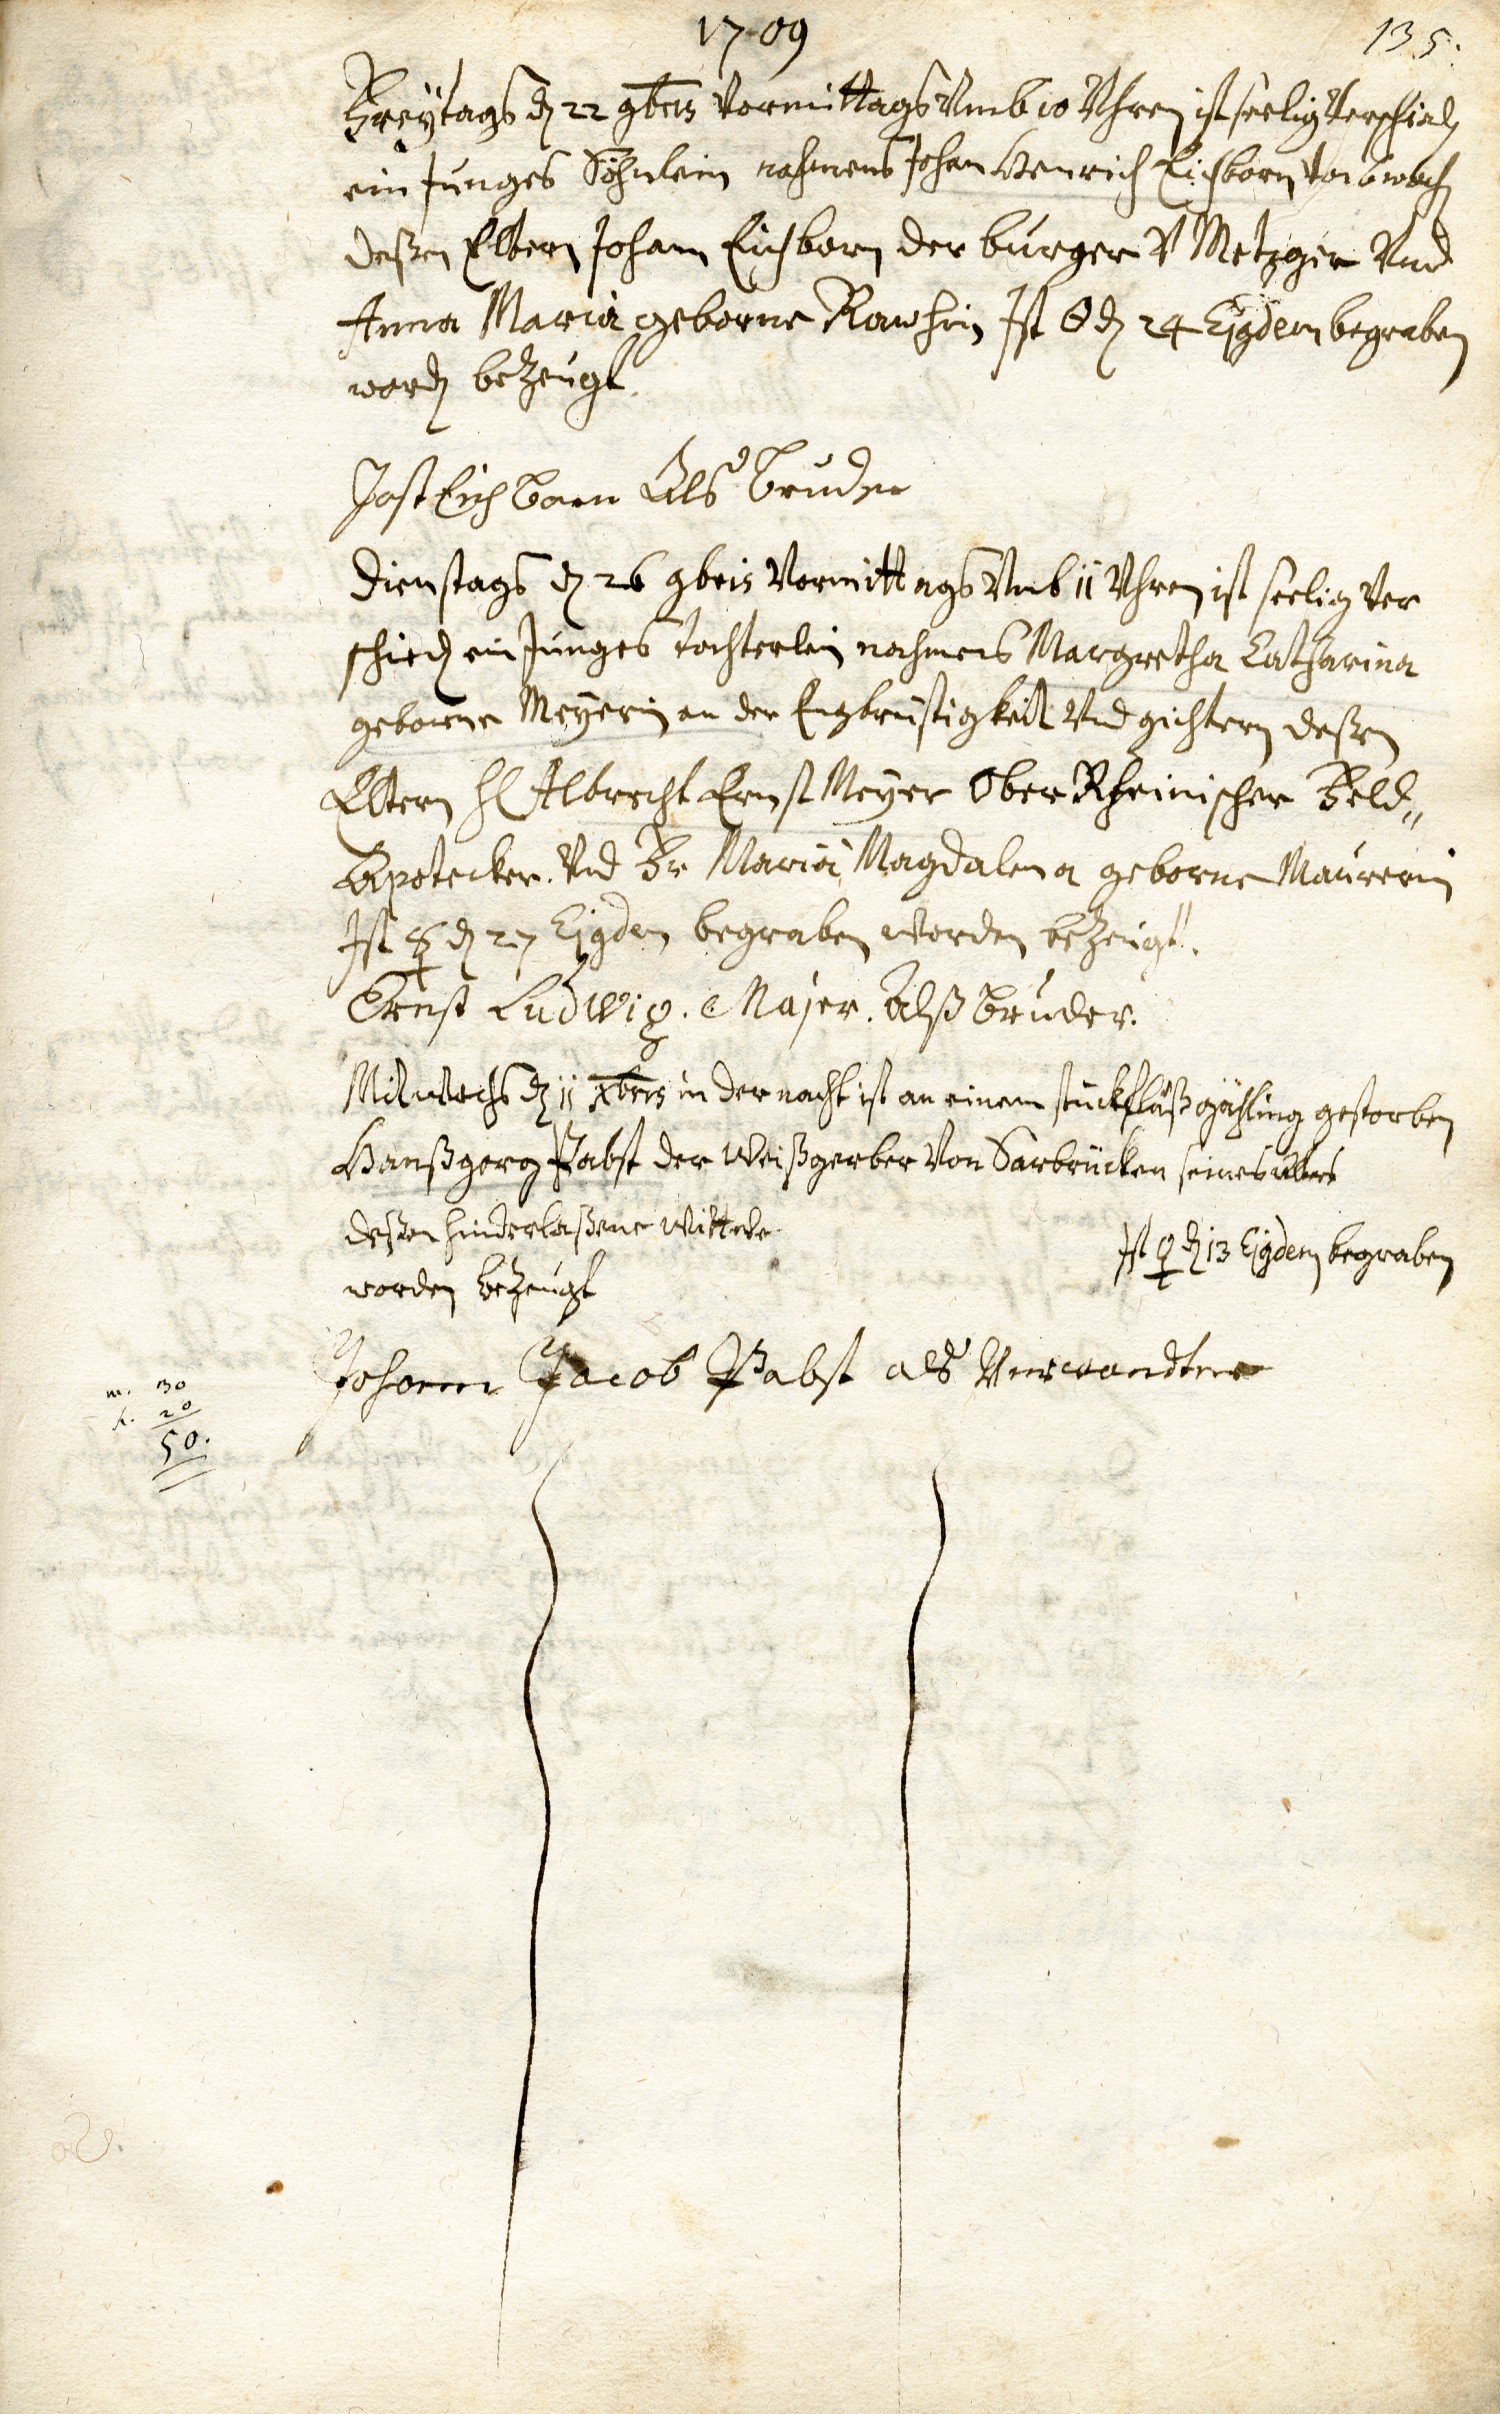 1709
135.
Freÿtags dẽ 22 9beis Vormittags Vmb 10 Uhren ist seelig verschied
ein Junges Söhnlein nahmens Johan Henrich Eichborn von 6 woch
deßen Eltern Johann Eichborn der burger V Metzger Vnd
Anna Maria geborne Ist ☉ dẽ 24 Ejgdem begraben
word bezeugt.
Jost Eichborn Als bruder
Dienstags dẽ 26 9beis Vormittags Vmb 11 Uhren ist seelig Ver
schied ein Junges tochterlein nahmens Margretha Catharina
geborne Meÿerin an der Engbrüstigkeit Vnd gichtern deßen
Eltern H Albrecht Ernst Meÿer Ober Rheinischer Feld„
Apotecker. Vnd Fr Maria Magdalena geborne Maurerin
Ist ☿ dẽ 27 Ejgdem begraben worden bezeugt.
Ernst Ludwig. Majer. Alß bruder.
Mitwochs dẽ 11 Xbris in der nacht ist an einem stückfluß gähling gestorben
Hanßgorg Pabst der Weißgerber Von Sarbrücken seines alters
deßen hinderlaßene Wittebe
Ist ♀ dẽ 13 Ejgdem begraben
worden bezeugt
Johann Jacob Pabst als Verwandter
m. 30
k. 20
50.